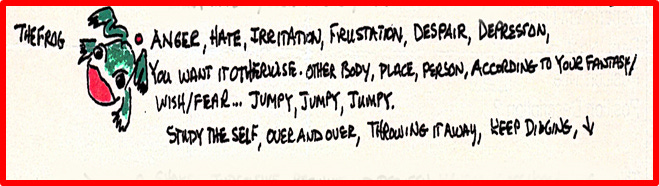 THE FROG
ANGER, HATE, IRRITATION, FRUSTATION, DESPAIR, DEPRESSON,
YOU WANT IT OTHERWISE. OTHER BODY, PLACE, PERSON, ACCORDING TO YOUR FANTASY/
WISH/FEAR... JUMPY, JUMPY, JUMPY.
STUDY THE SELF, OVER AND OVER, THROWING IT AWAY, KEEP DIGGING, ↓